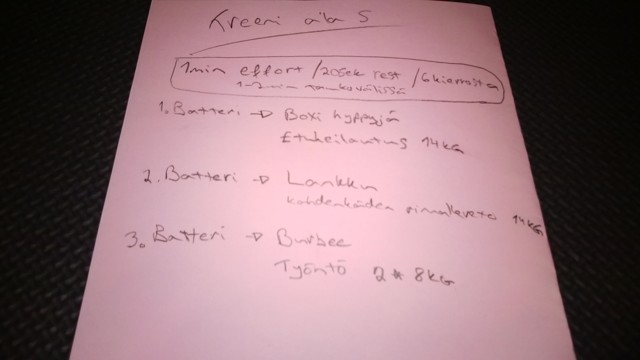 Treeni aika 5
1min effort / 20sek rest / 6kierrosta
1-2min taukovälissä
1. Batteri → Boxi hyppyjä
Etuheilautus 14kG
2. Batteri → Lankku
kahdenkäden rinnalleveto 14kG
3. Batteri → Burbee
Työntö 2*8kG